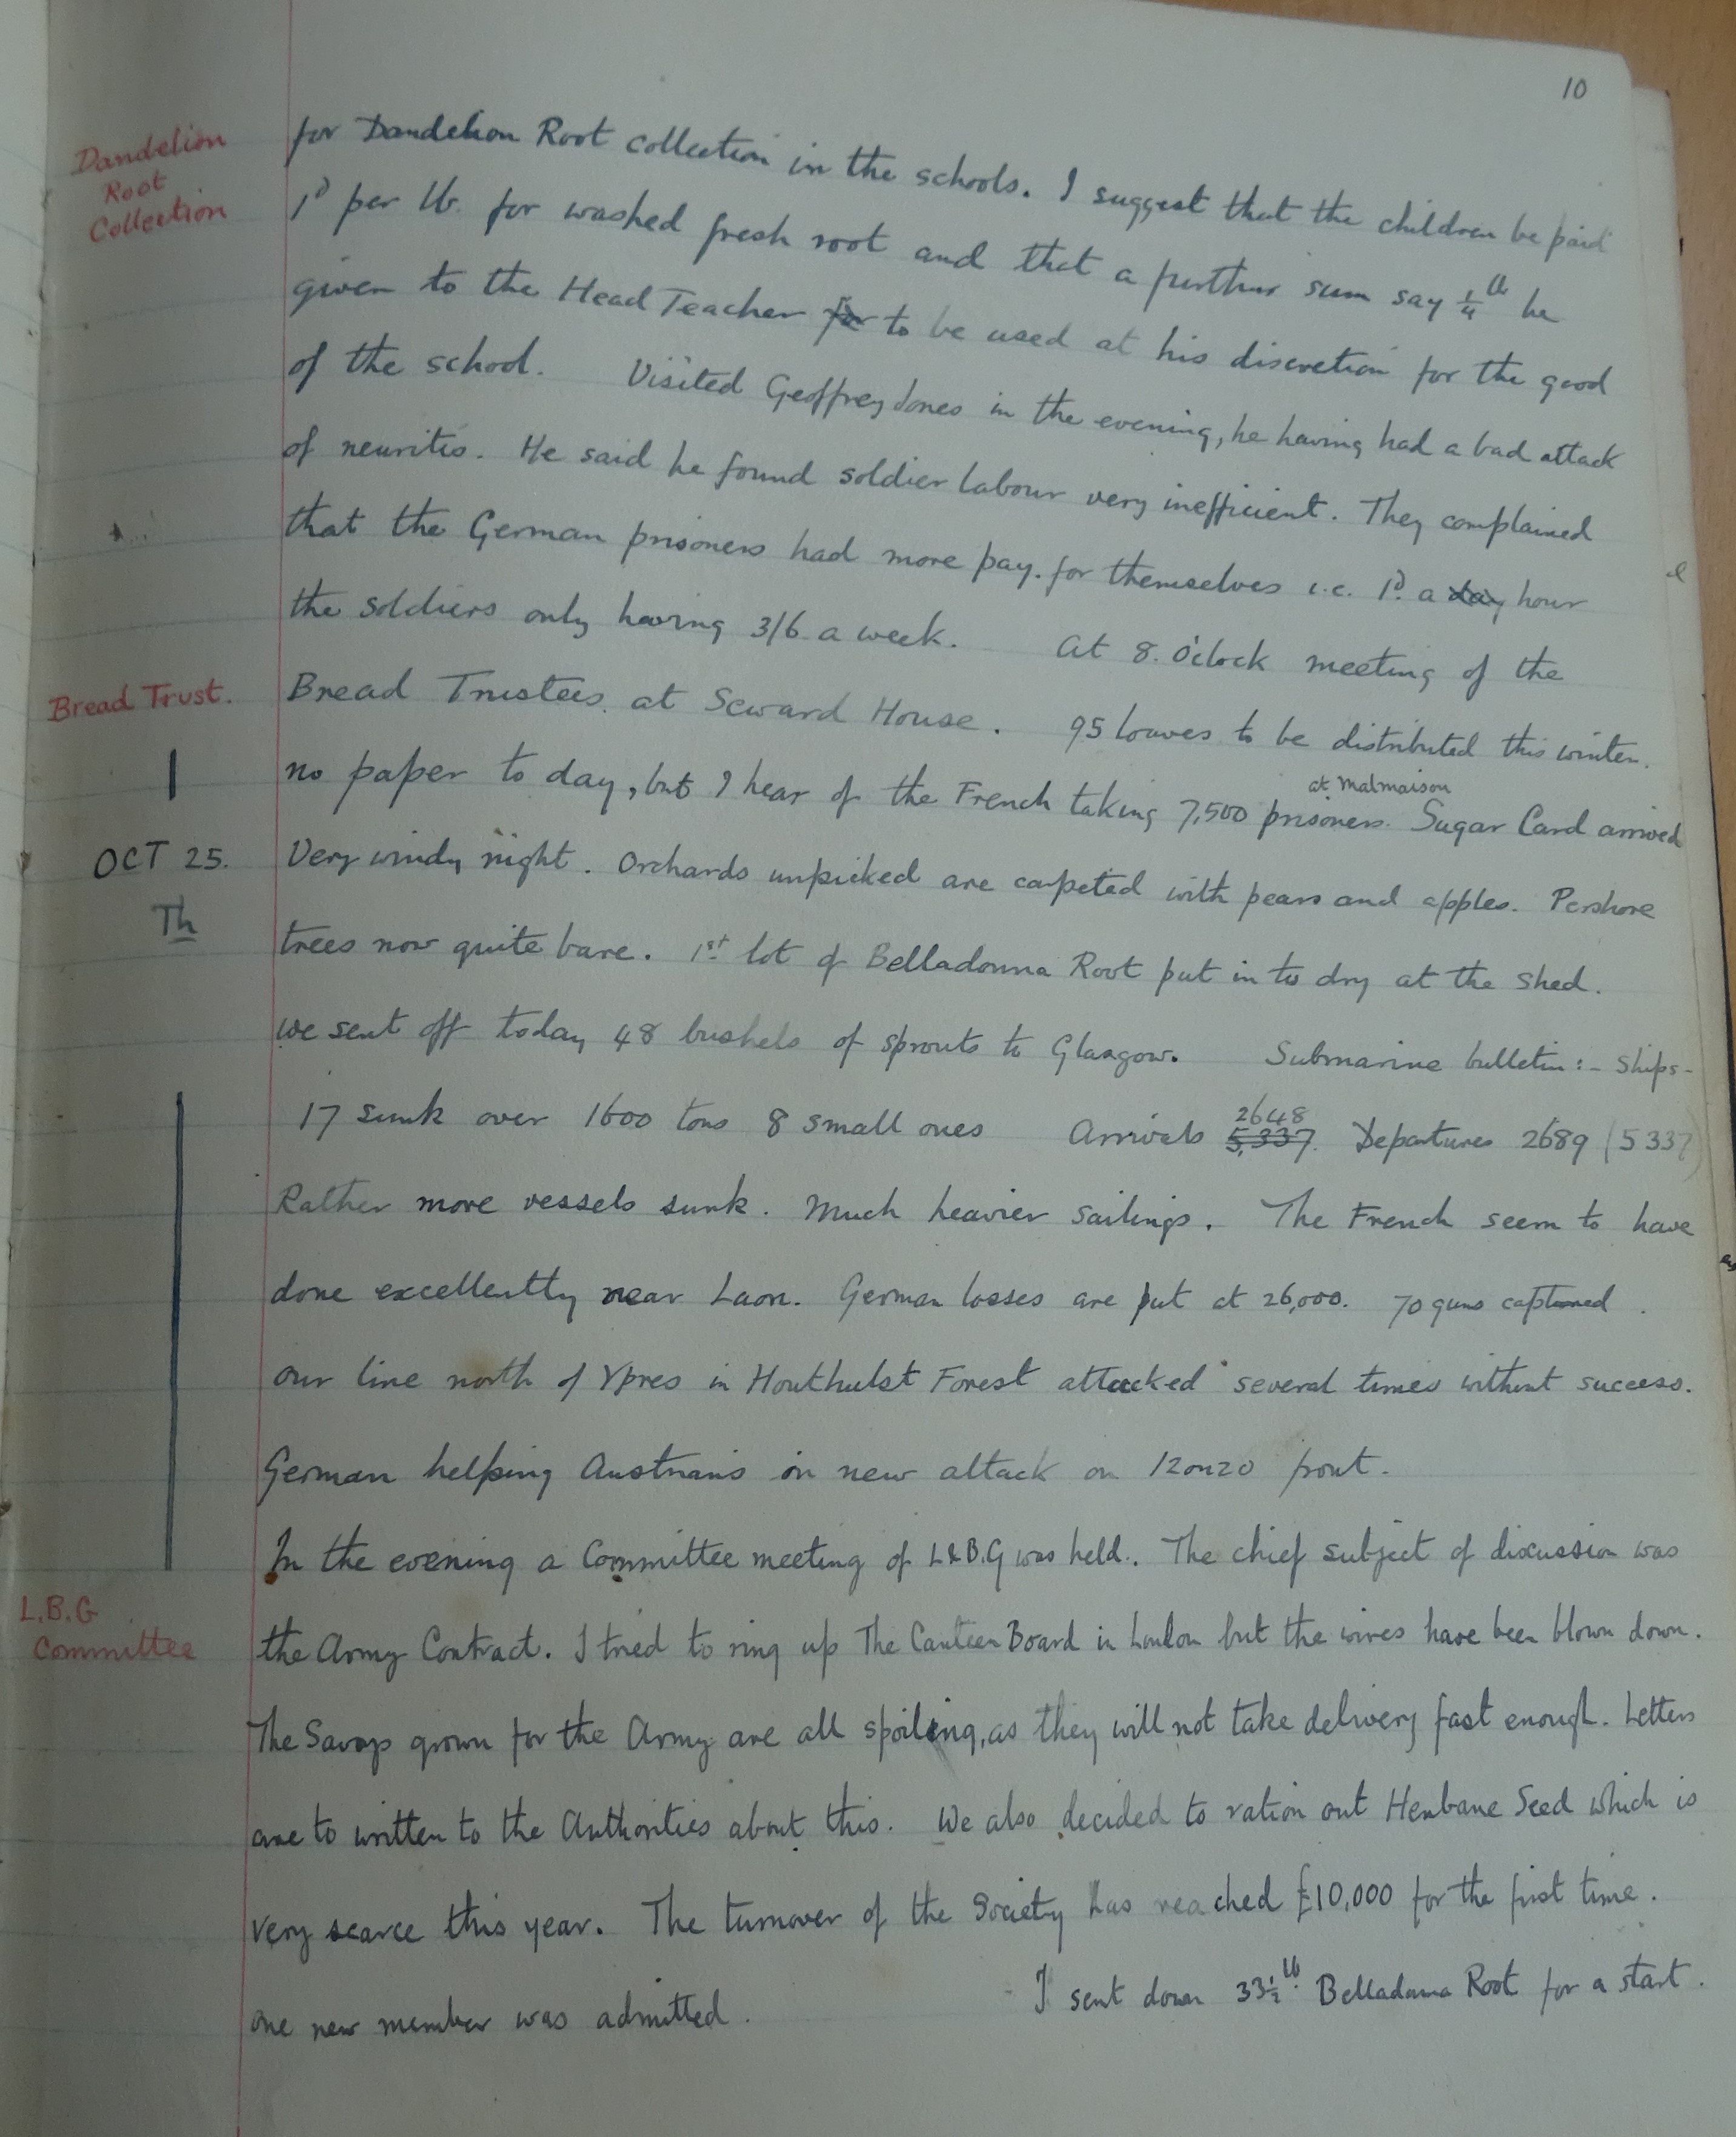 10
Dandelion
Root
Collection
for Dandelion Root collection in the schools. I suggest that the children be paid
1ᴰ per lb. for washed fresh root and that a further sum say ¼ lb be
given to the Head Teacher for to be used at his discretion for the good
of the school. Visited Geoffrey Jones in the evening, he having had a bad attack
of neuritis. He said he found soldier labour very inefficient. They complained
that the German prisoners had more pay. for themselves i.e. 1ᴰ. a day hour
the soldiers only having 3/6 a week. At 8. O'clock meeting of the
Bread Trust.
Bread Trustees. at Seward House. 95 loaves to be distributed this winter.
no paper to day, but I hear of the French taking 7,500 prisoners. at Malmaison Sugar Card arrived
OCT 25.
Th
Very windy night. Orchards unpicked are carpeted with pears and apples. Pershore
trees now quite bare. 1st lot of Belladonna Root put in to dry at the shed.
we sent off today 48 bushels of sprouts to Glasgow. Submarine bulletin:- Ships-
17 sunk over 1600 tons 8 small ones Arrivals 5,337. 2648 Departures 2689 (5337)
Rather more vessels sunk. Much heavier sailings. The French seem to have
done excellently near Laon. German losses are put at 26,000. 70 guns captured.
our line north of Ypres in Houthulst Forest attacked several times without success.
German helping Austrians in new attack on Isonzo front.
In the evening a Committee meeting of L&B.G was held. The chief subject of discussion was
L.B.G
Committee
the Army Contract. I tried to ring up The Canteen Board in London but the wires have been blown down.
The Savoys grown for the Army are all spoiling, as they will not take delivery fast enough. Letters
are to written to the Authorities about this. We also decided to ration out Henbane Seed which is
very scarce this year. The turnover of the Society has reached £10,000 for the first time.
one new member was admitted. I sent down 33½ lb. Belladonna Root for a start.